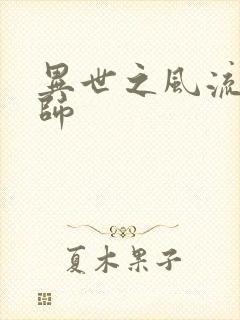 異世之風流
師
夏木果子